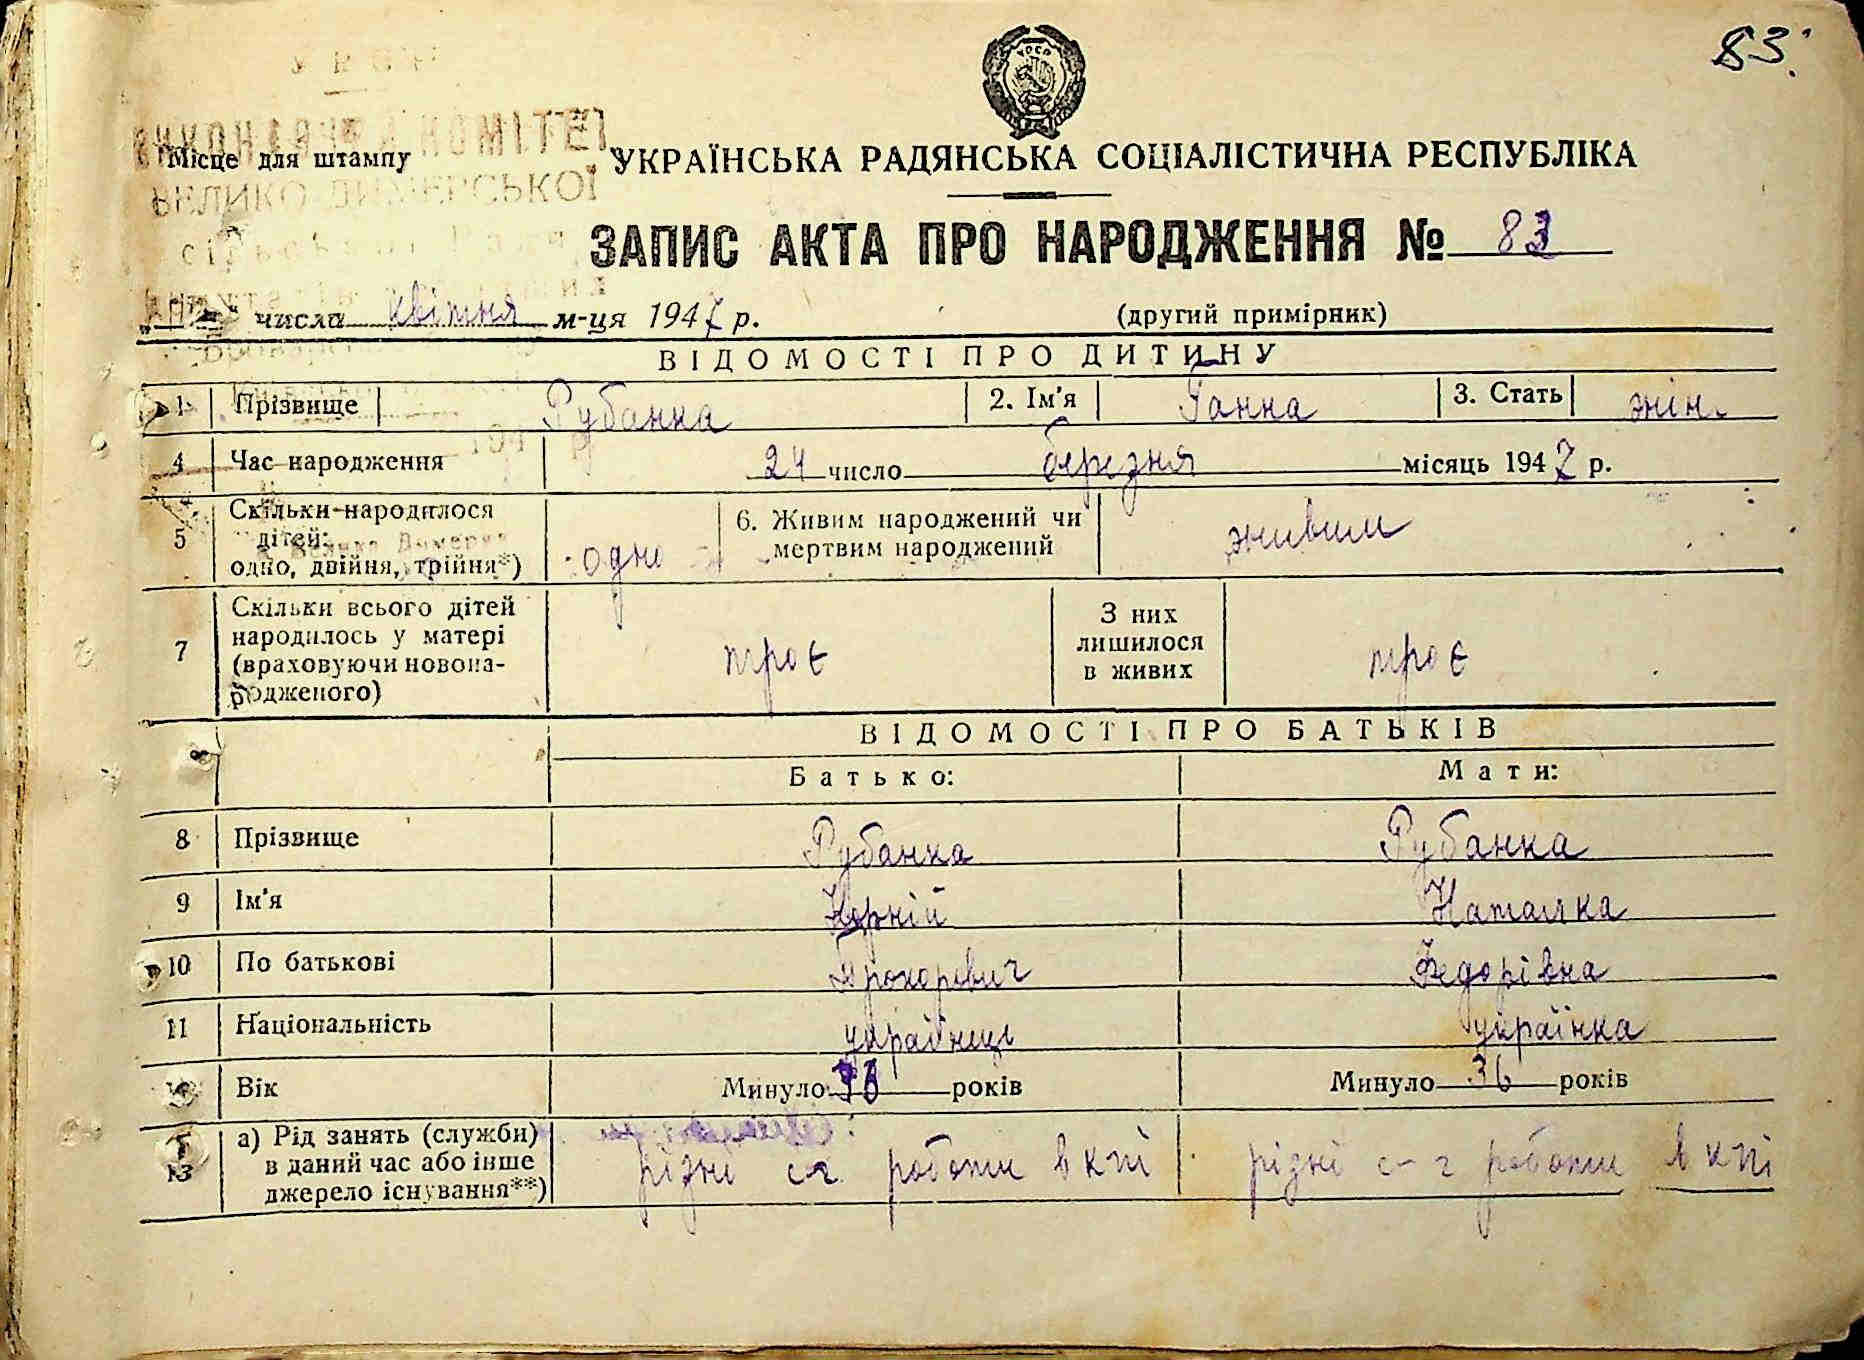 83.
УРСР
ВИКОНАВЧИЙ КОМІТЕТ
Місце для штампу
УКРАЇНСЬКА РАДЯНСЬКА СОЦІАЛІСТИЧНА РЕСПУБЛІКА
ВЕЛИКО ДИМЕРСЬКОЇ
ЗАПИС АКТА ПРО НАРОДЖЕННЯ № 83
числа квітня м-ця 1947 р. (другий примірник)
ВІДОМОСТІ ПРО ДИТИНУ
1 Прізвище Рубанка 2. Ім'я Ганна 3. Стать жін.
4 Час народження 24 число березня місяць 1947 р.
5 Скільки народилося дітей: одно, двійня, трійня*) одно 6. Живим народжений чи мертвим народжений живим
Велика Димерка
7 Скільки всього дітей народилось у матері (враховуючи новонародженого) троє З них лишилося в живих троє
ВІДОМОСТІ ПРО БАТЬКІВ
Батько: Мати:
8 Прізвище Рубанка Рубанка
9 Ім'я Корній Наталка
10 По батькові Прохорович Федорівна
11 Національність українець українка
Вік Минуло років Минуло 36 років
13 а) Рід занять (служби) в даний час або інше джерело існування**) різні с-г. роботи в кгі різні с-г роботи в кгі